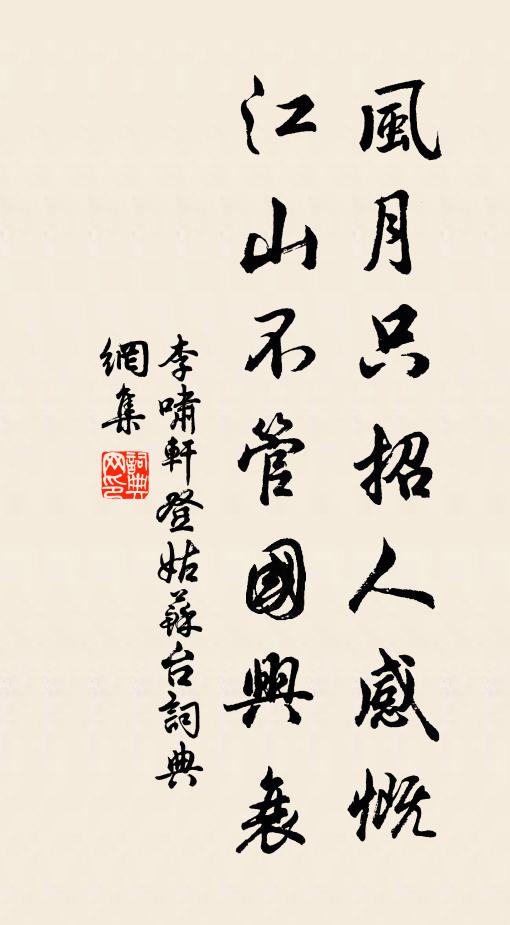 風月只招人感慨
江山不管國興衰
李嘯軒登姑蘇台詞典
網集
詞典網印